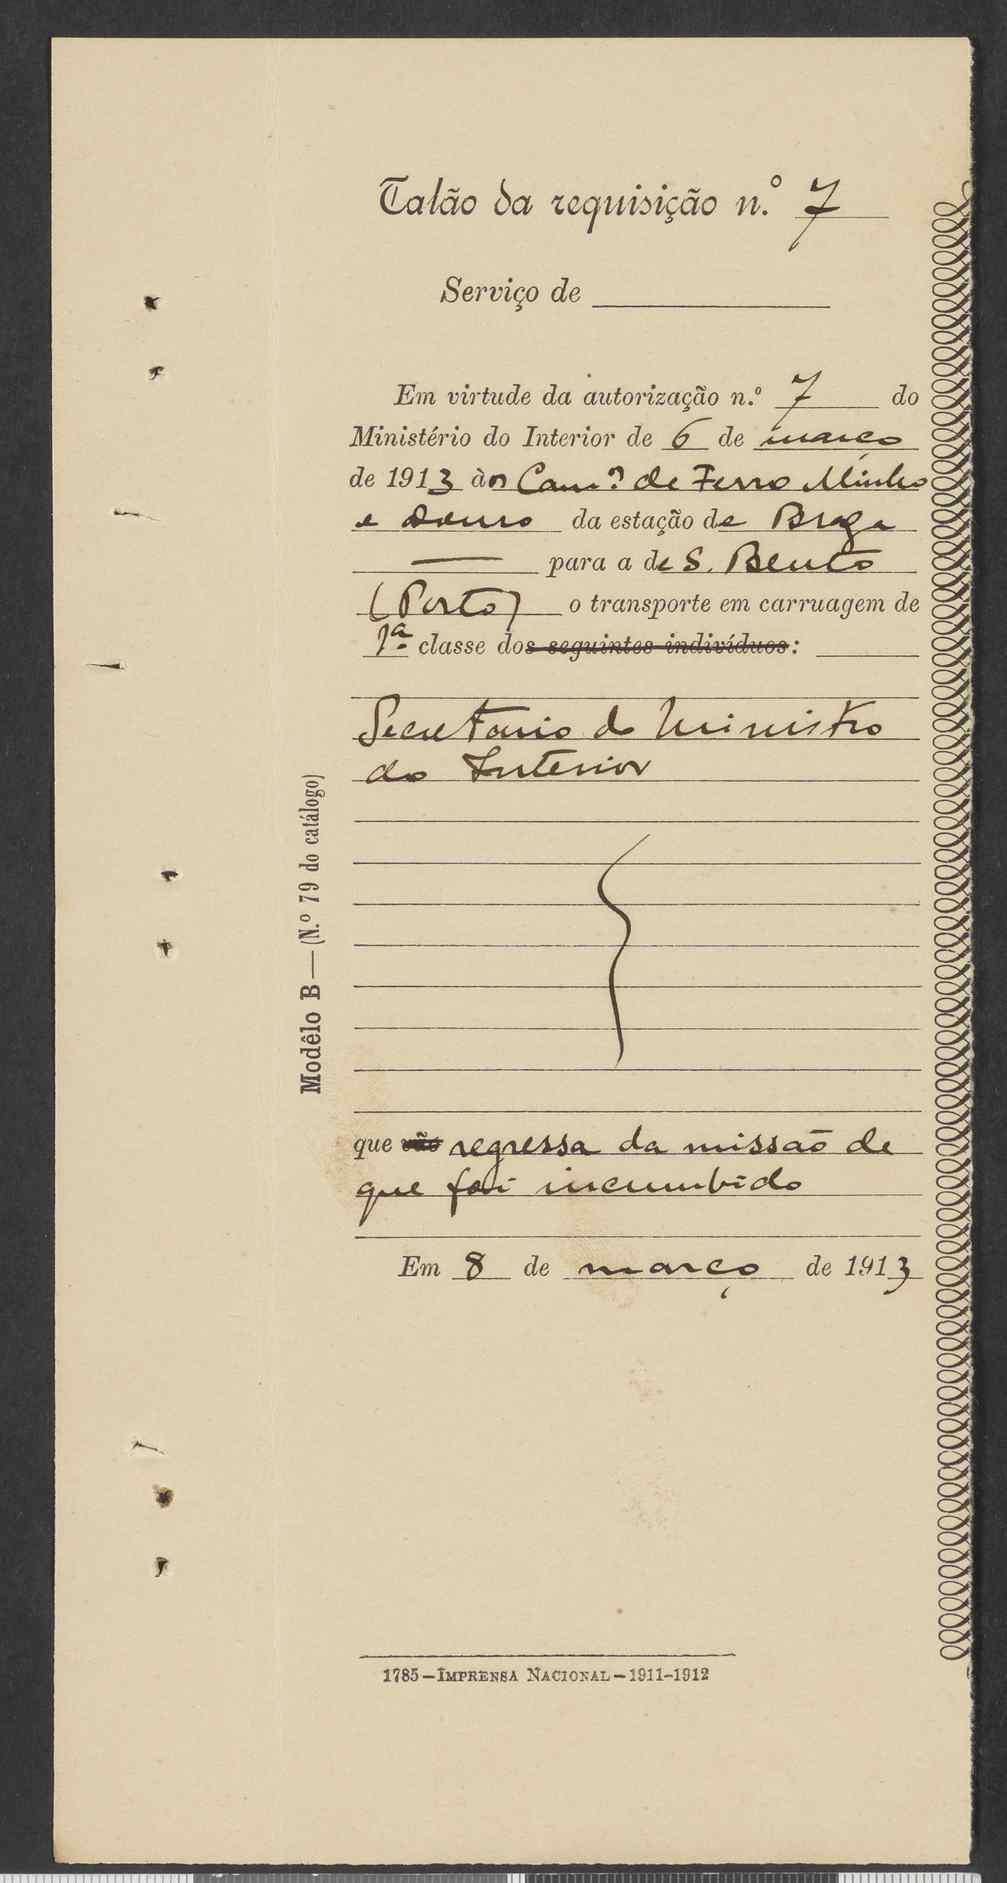 Talão da requisição n.º 7
Serviço de
Em virtude da autorização n.º 7 do
Ministério do Interior de 6 de março
de 1913 àos Cam.os de Ferro Minho
e Douro da estação de Braga
— para a de S. Bento
(Porto) o transporte em carruagem de
1.ª classe dos seguintes indivíduos:
Secretario do Ministro
do Interior
que vão regressa da missaõ de
que foi incumbido
Em 8 de março de 1913
Modêlo B — (N.º 79 do catálogo)
1785 — IMPRENSA NACIONAL — 1911-1912